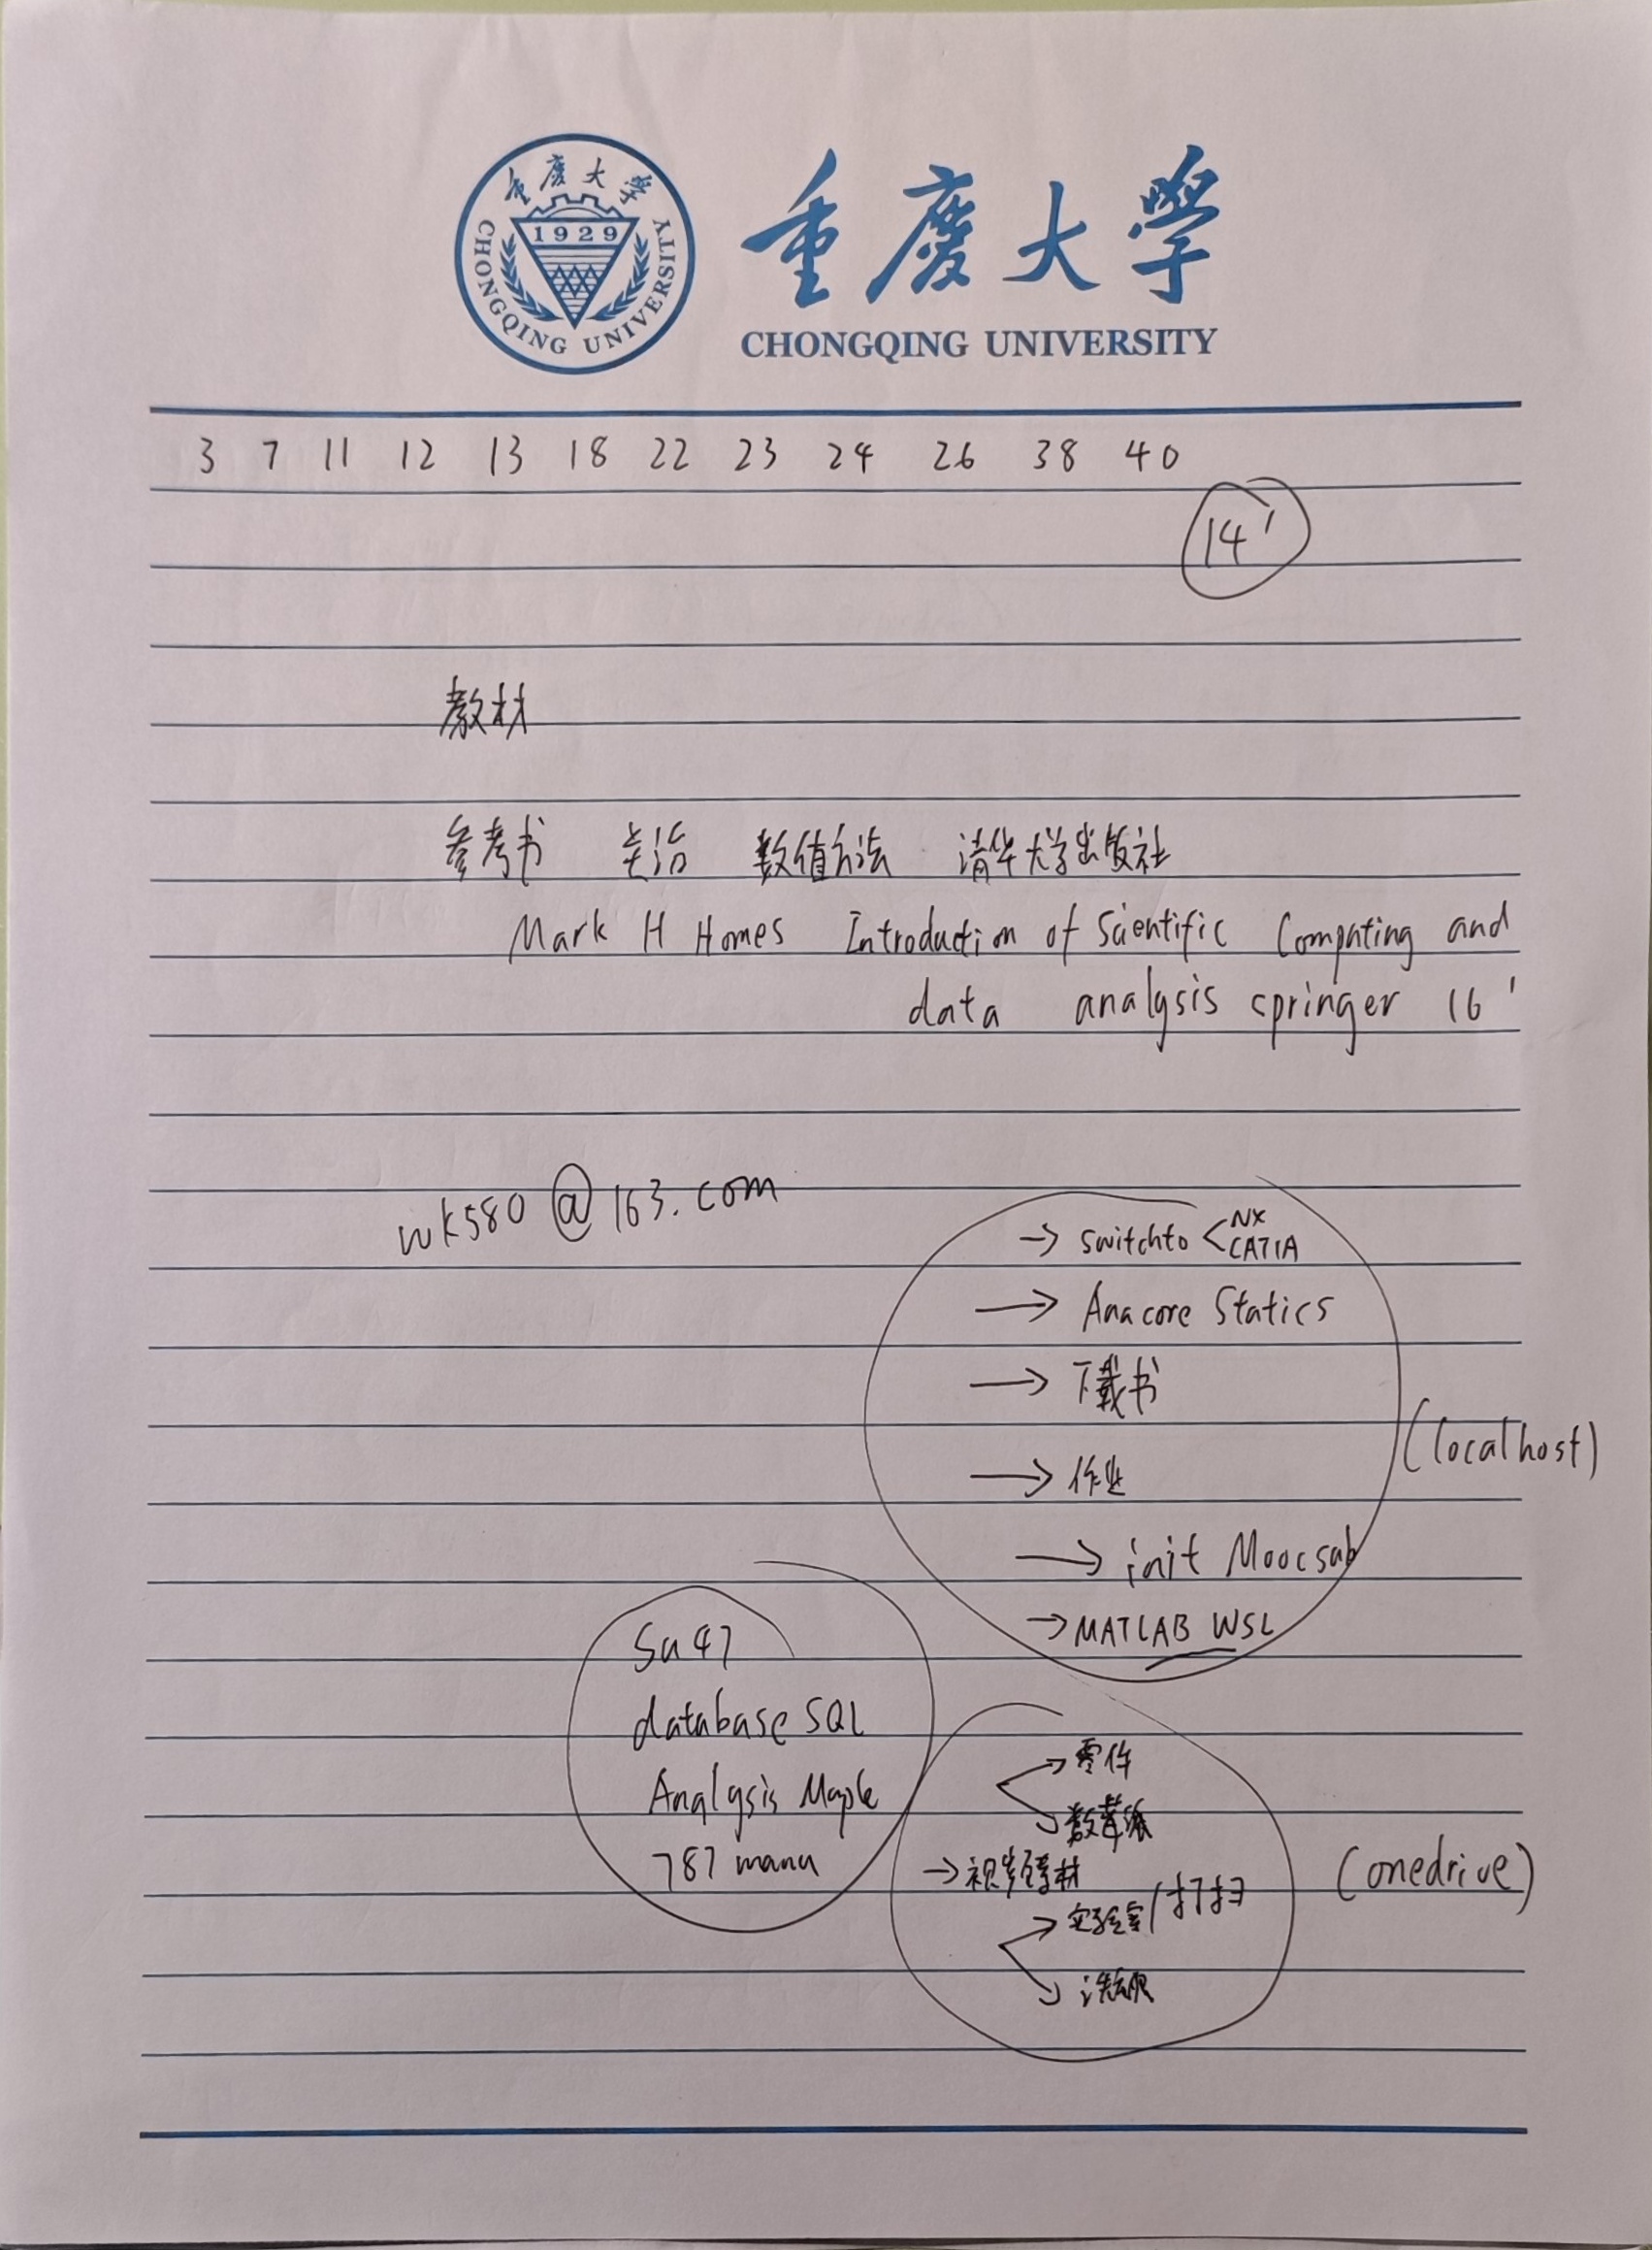 重慶大學
CHONGQING UNIVERSITY
1929
重慶大學
CHONGQING UNIVERSITY
3 7 11 12 13 18 22 23 24 26 38 40
14'
教材
参考书 关治 数值方法 清华大学出版社
Mark H Homes Introduction of Scientific Computing and
data analysis cpringer 16'
wk580@163.com
→ switchto < NX
CATIA
→ Anacore Statics
→ 下载书
→ 作业
(localhost)
→ init Moocsab
→ MATLAB WSL
Su47
database SQL
Analysis Maple
787 manu
→ 零件
→ 数草纸
→ 视频素材
→ 实验室/打扫
→ 洗衣服
(onedrive)